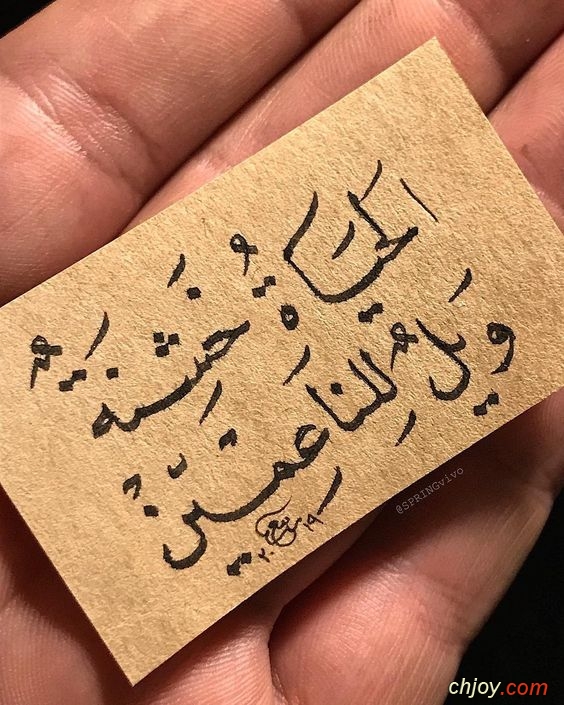 الحَيَاةُ خَشِنَةٌ
وَيلٌ للناعِمَيْنْ
٢٠١٩
@SPRINGvivo
chjoy.com